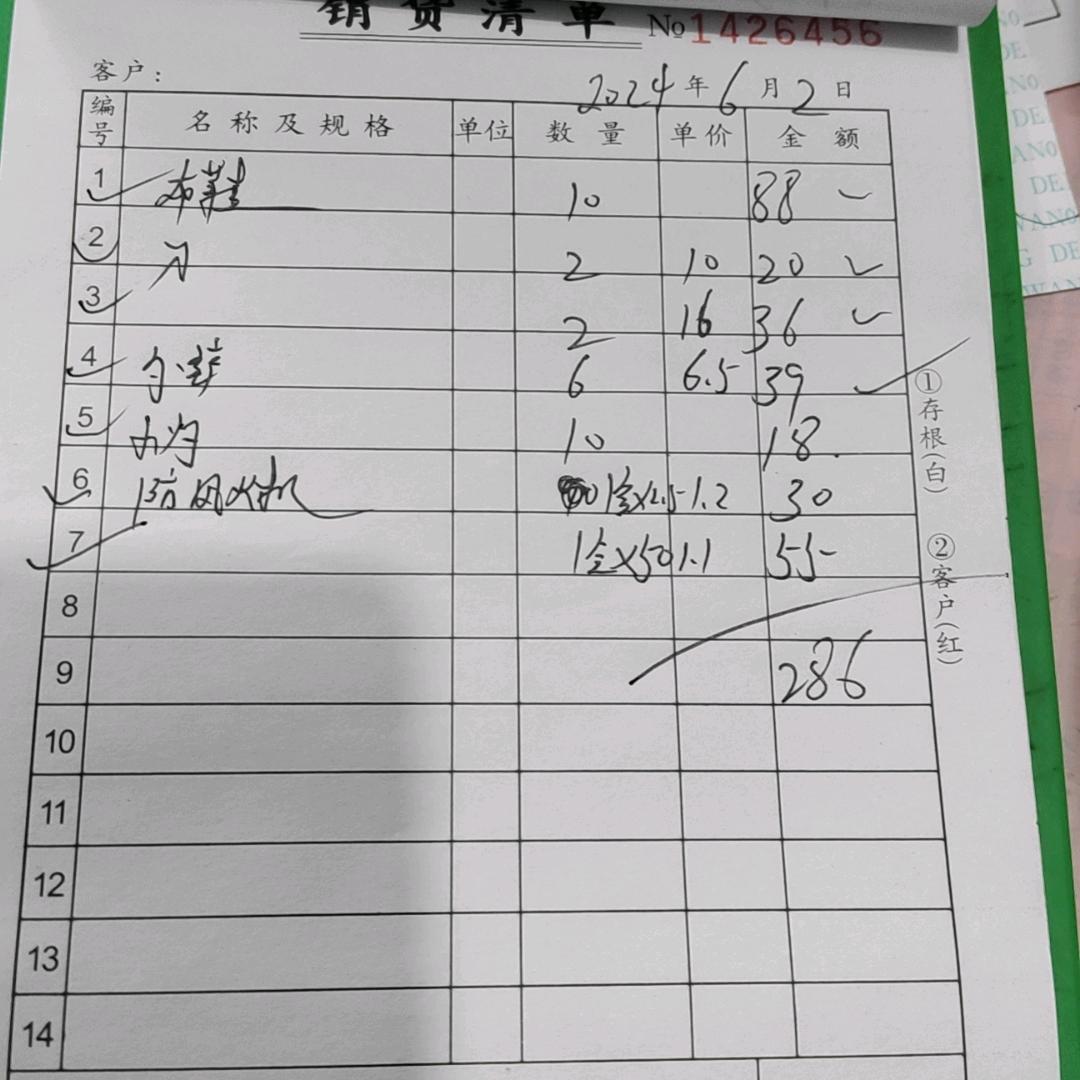 销货清单 No 1426456
客户： 2024年6月2日
编号 名称及规格 单位 数量 单价 金额
1 布鞋 10 88
2 2 10 20
3 2 16 36
4 6 6.5 39
5 10 18.
6 防风火机 1盒×25 1.2 30
7 1盒×50 1.1 55
8
9 286
10
11
12
13
14
①存根(白)
②客户(红)